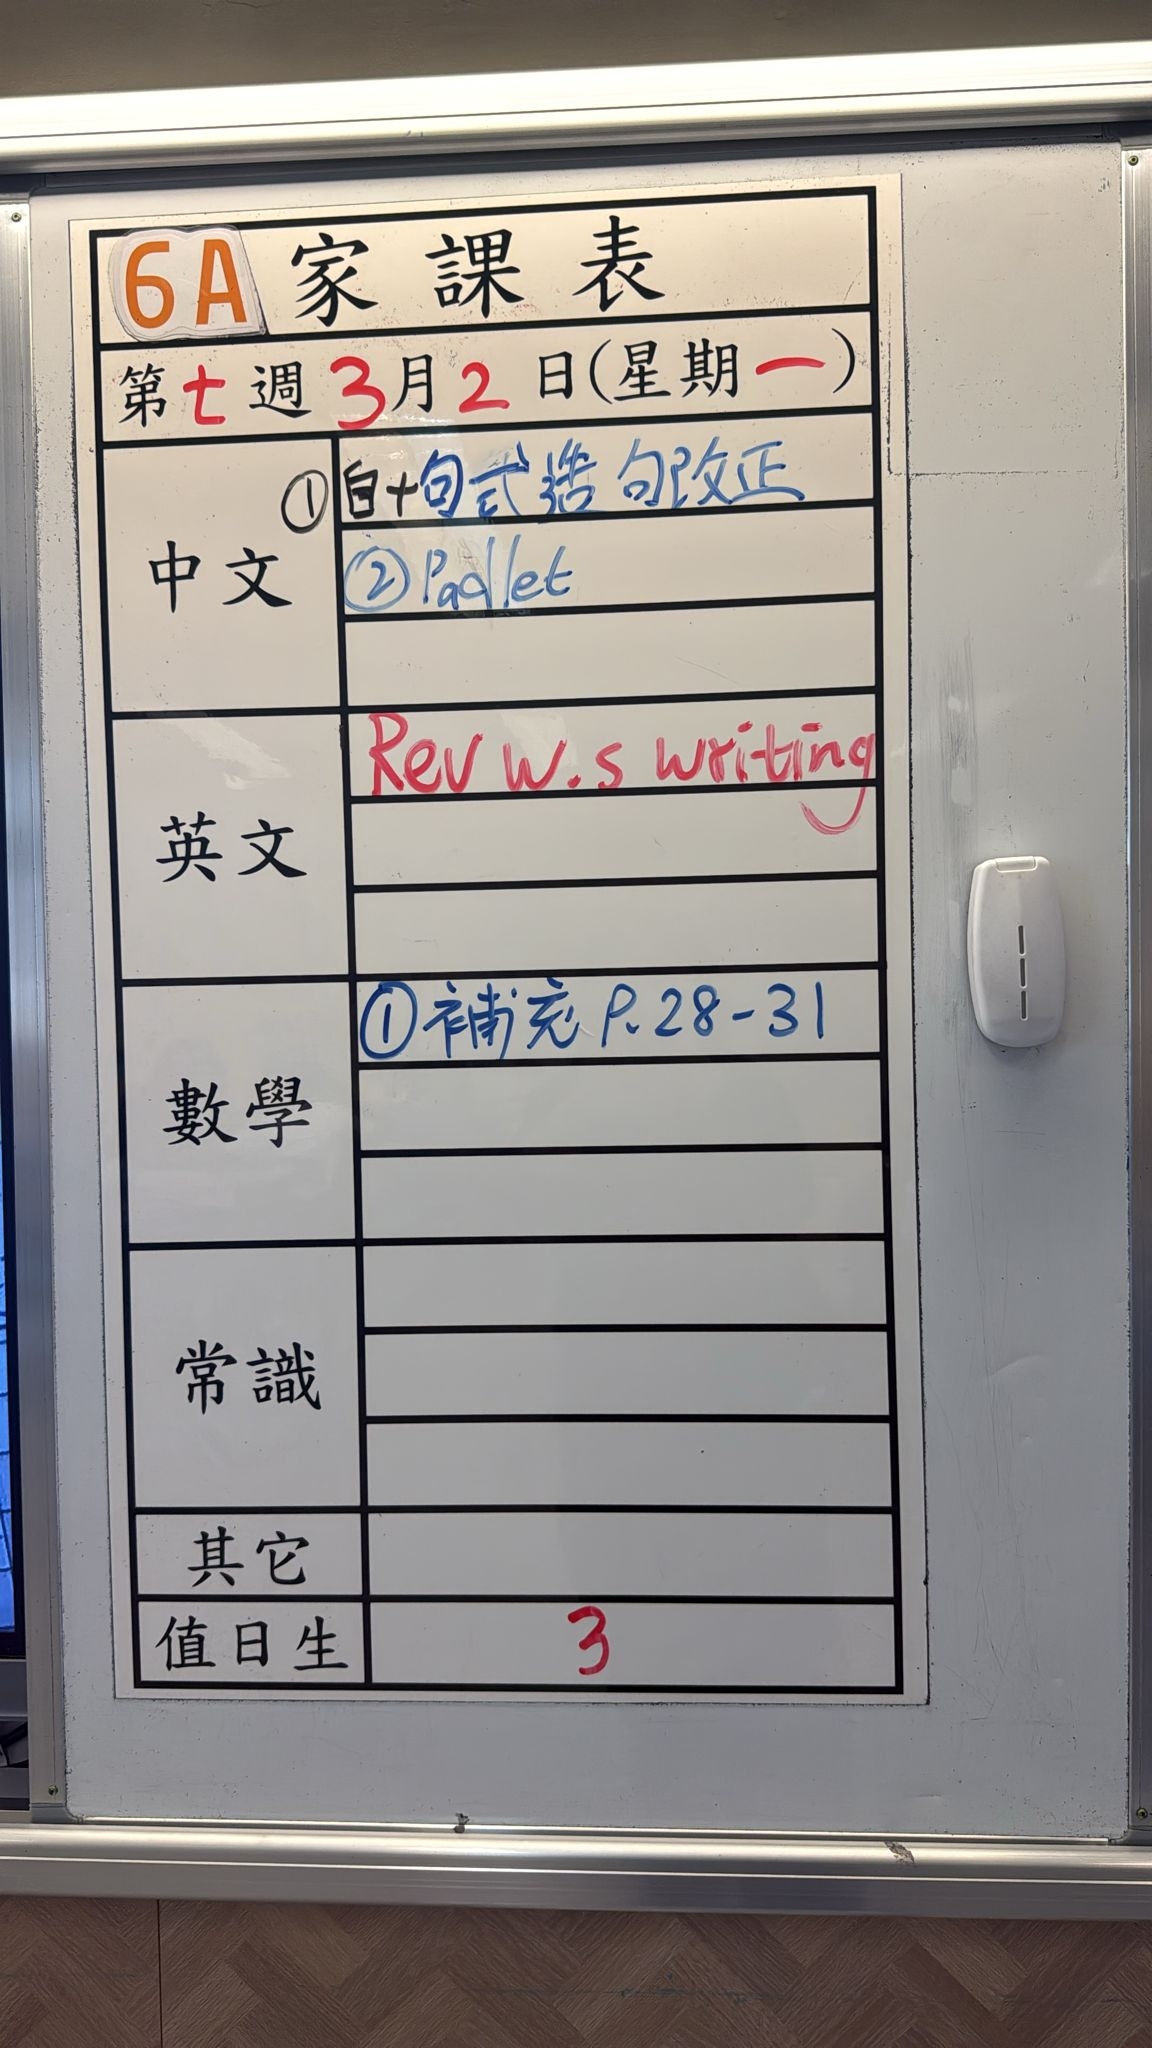 6A 家課表
第七週 3月2日(星期一)
中文
①自+句式造句改正
②Padlet
英文
Rev w.s writing
數學
①補充 P.28-31
常識
其它
值日生 3